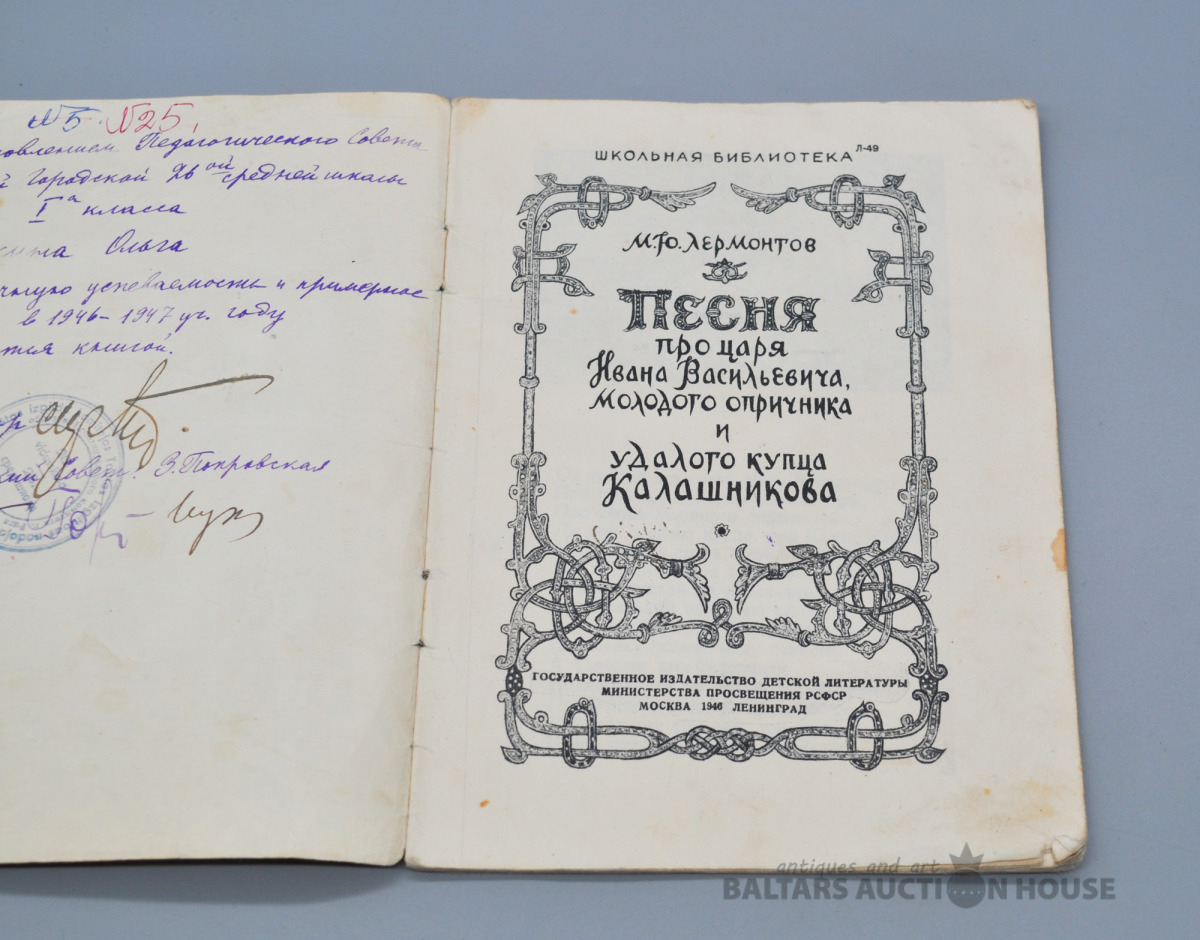 №5. №25.
овлением Педагогического Совета
й Городской 26ой средней школы
Iа класса
Ольга
успеваемость и примерное
в 1946-1947 уч. году
тся книгой.
Совет. З. Покровская
ШКОЛЬНАЯ БИБЛИОТЕКА Л-49
М.Ю. ЛЕРМОНТОВ
ПЕСНЯ
про царя
Ивана Васильевича,
молодого опричника
и
удалого купца
Калашникова
ГОСУДАРСТВЕННОЕ ИЗДАТЕЛЬСТВО ДЕТСКОЙ ЛИТЕРАТУРЫ
МИНИСТЕРСТВА ПРОСВЕЩЕНИЯ РСФСР
МОСКВА 1946 ЛЕНИНГРАД
antiques and art
BALTARS AUCTION HOUSE